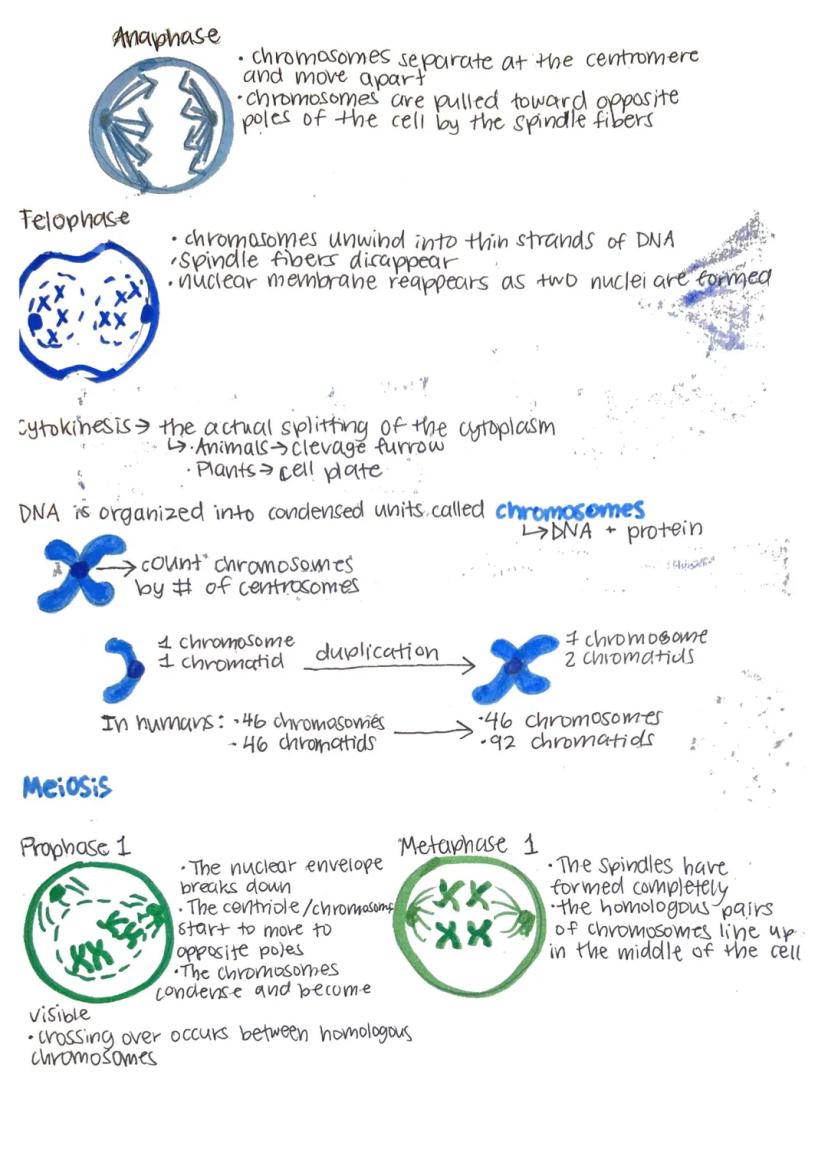 Anaphase
• chromosomes separate at the centromere
and move apart
• chromosomes are pulled toward opposite
poles of the cell by the spindle fibers
Telophase
• chromosomes unwind into thin strands of DNA
• spindle fibers disappear
• nuclear membrane reappears as two nuclei are formed
Cytokinesis → the actual splitting of the cytoplasm
↳ • Animals → clevage furrow
• Plants → cell plate
DNA is organized into condensed units called chromosomes
↳ DNA + protein
→ count chromosomes
by # of centrosomes
1 chromosome
1 chromatid
duplication
1 chromosome
2 chromatids
In humans: • 46 chromosomes
- 46 chromatids
• 46 chromosomes
• 92 chromatids
Meiosis
Prophase 1
• The nuclear envelope
breaks down
• The centriole/chromosome
start to more to
opposite poles
• The chromosomes
condense and become
visible
• crossing over occurs between homologous
chromosomes
Metaphase 1
• The spindles have
formed completely
• the homologous pairs
of chromosomes line up
in the middle of the cell